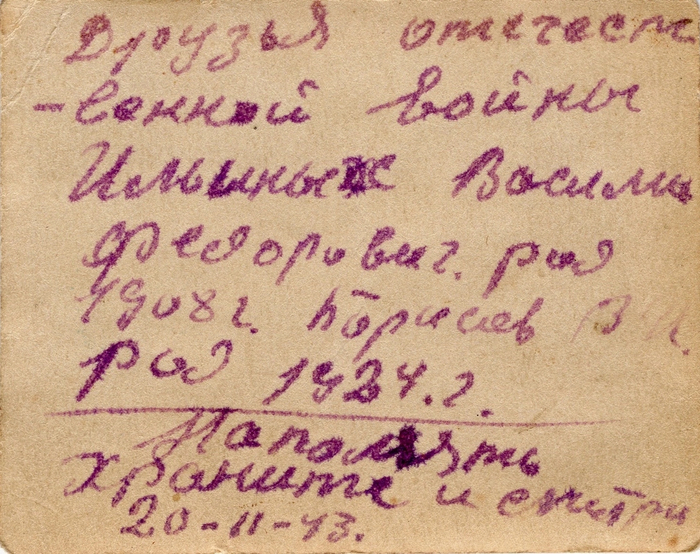 Друзья отечест
-венной войны
Ильиных Васили
Федорович. род
1908 г. Борисов В
род 1924. г.
Напомять
храните и смотри
20-11-43.